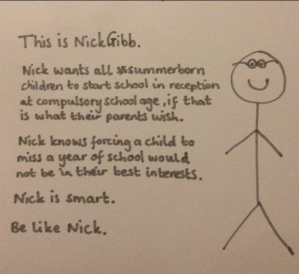 This is NickGibb.
Nick wants all summerborn
children to start school in reception
at compulsory school age, if that
is what their parents wish.
Nick knows forcing a child to
miss a year of school would
not be in their best interests.
Nick is smart.
Be like Nick.